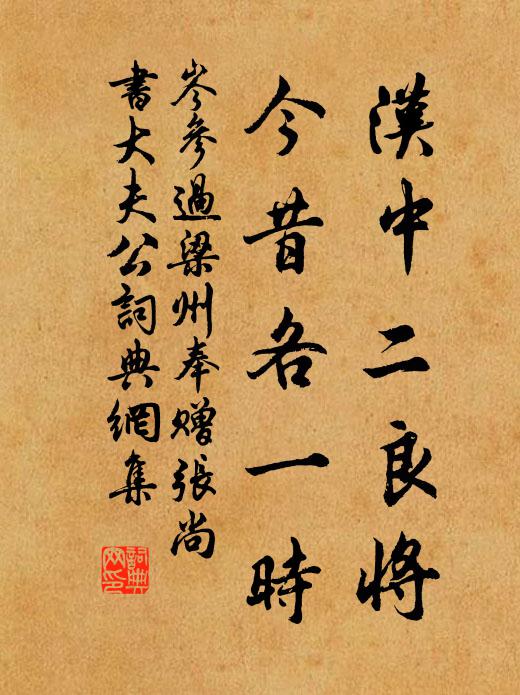 漢中二良將
今昔各一時
岑參過梁州奉贈張尚
書大夫公詞典網集
詞典
网印